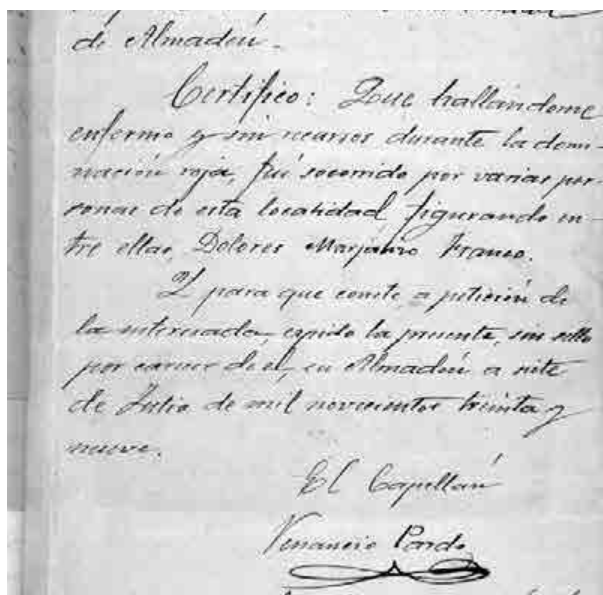 de Almadén.
Certifico: Que hallándome
enfermo y sin recursos durante la domi-
nación roja, fuí socorrido por varias per-
sonas de esta localidad figurando en-
tre ellas, Dolores Manjavro Franco.
Y para que conste, a petición de
la interesada, expido la presente, sin sello
por carecer de el, en Almadén a siete
de Julio de mil novecientos treinta y
nueve.
El Capellán
Venancio Pardo